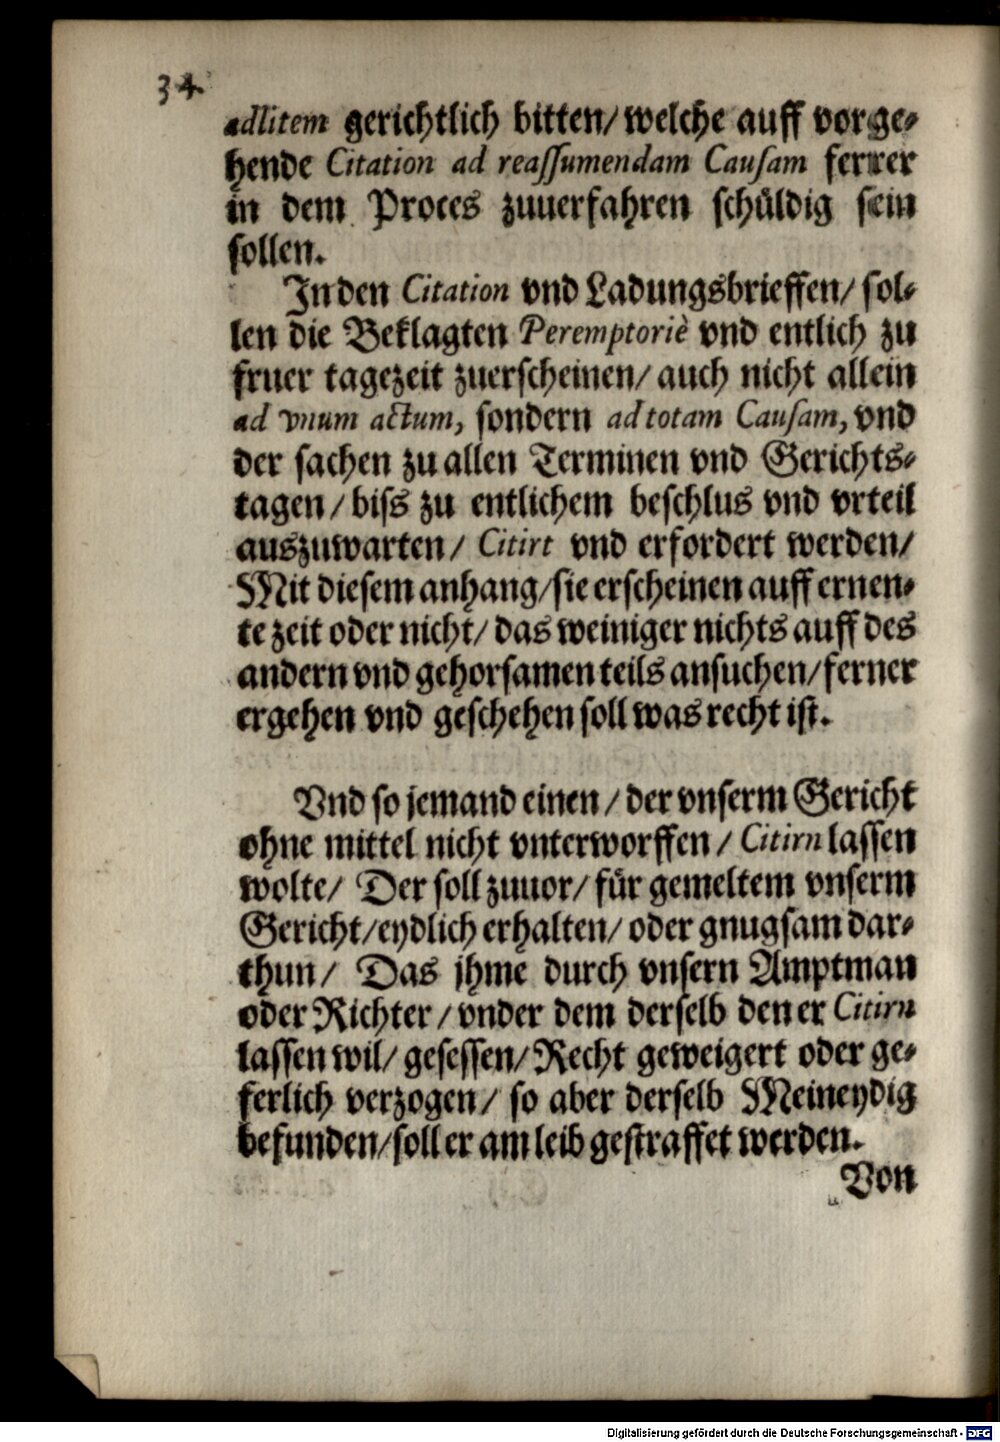 34.
adlitem gerichtlich bitten/welche auff vorge⸗
hende Citation ad reaſſumendam Cauſam ferrer
in dem Proces zuuerfahren ſchüldig ſein
ſollen.
In den Citation vnd Ladungsbrieffen/ ſol⸗
len die Beklagten Peremptoriè vnd entlich zu
fruer tagezeit zuerſcheinen/ auch nicht allein
ad vnum actum, ſondern ad totam Cauſam, vnd
der ſachen zu allen Terminen vnd Gerichts⸗
tagen/ biſs zu entlichem beſchlus vnd vrteil
auszuwarten/ Citirt vnd erfordert werden/
Mit dieſem anhang/ſie erſcheinen auff ernen⸗
te zeit oder nicht/ das weiniger nichts auff des
andern vnd gehorſamen teils anſuchen/ferner
ergehen vnd geſchehen ſoll was recht iſt.
Vnd ſo jemand einen/der vnſerm Gericht
ohne mittel nicht vnterworffen/ Citirn laſſen
wolte/ Der ſoll zuuor/ für gemeltem vnſerm
Gericht/eydlich erhalten/ oder gnugſam dar⸗
thun/ Das jhme durch vnſern Amptman
oder Richter/vnder dem derſelb den er Citirn
laſſen wil/ geſeſſen/Recht geweigert oder ge⸗
ferlich verzogen/ ſo aber derſelb Meineydig
befunden/ſoll er am leib geſtraffet werden.
Von
Digitalisierung gefördert durch die Deutsche Forschungsgemeinschaft - DFG